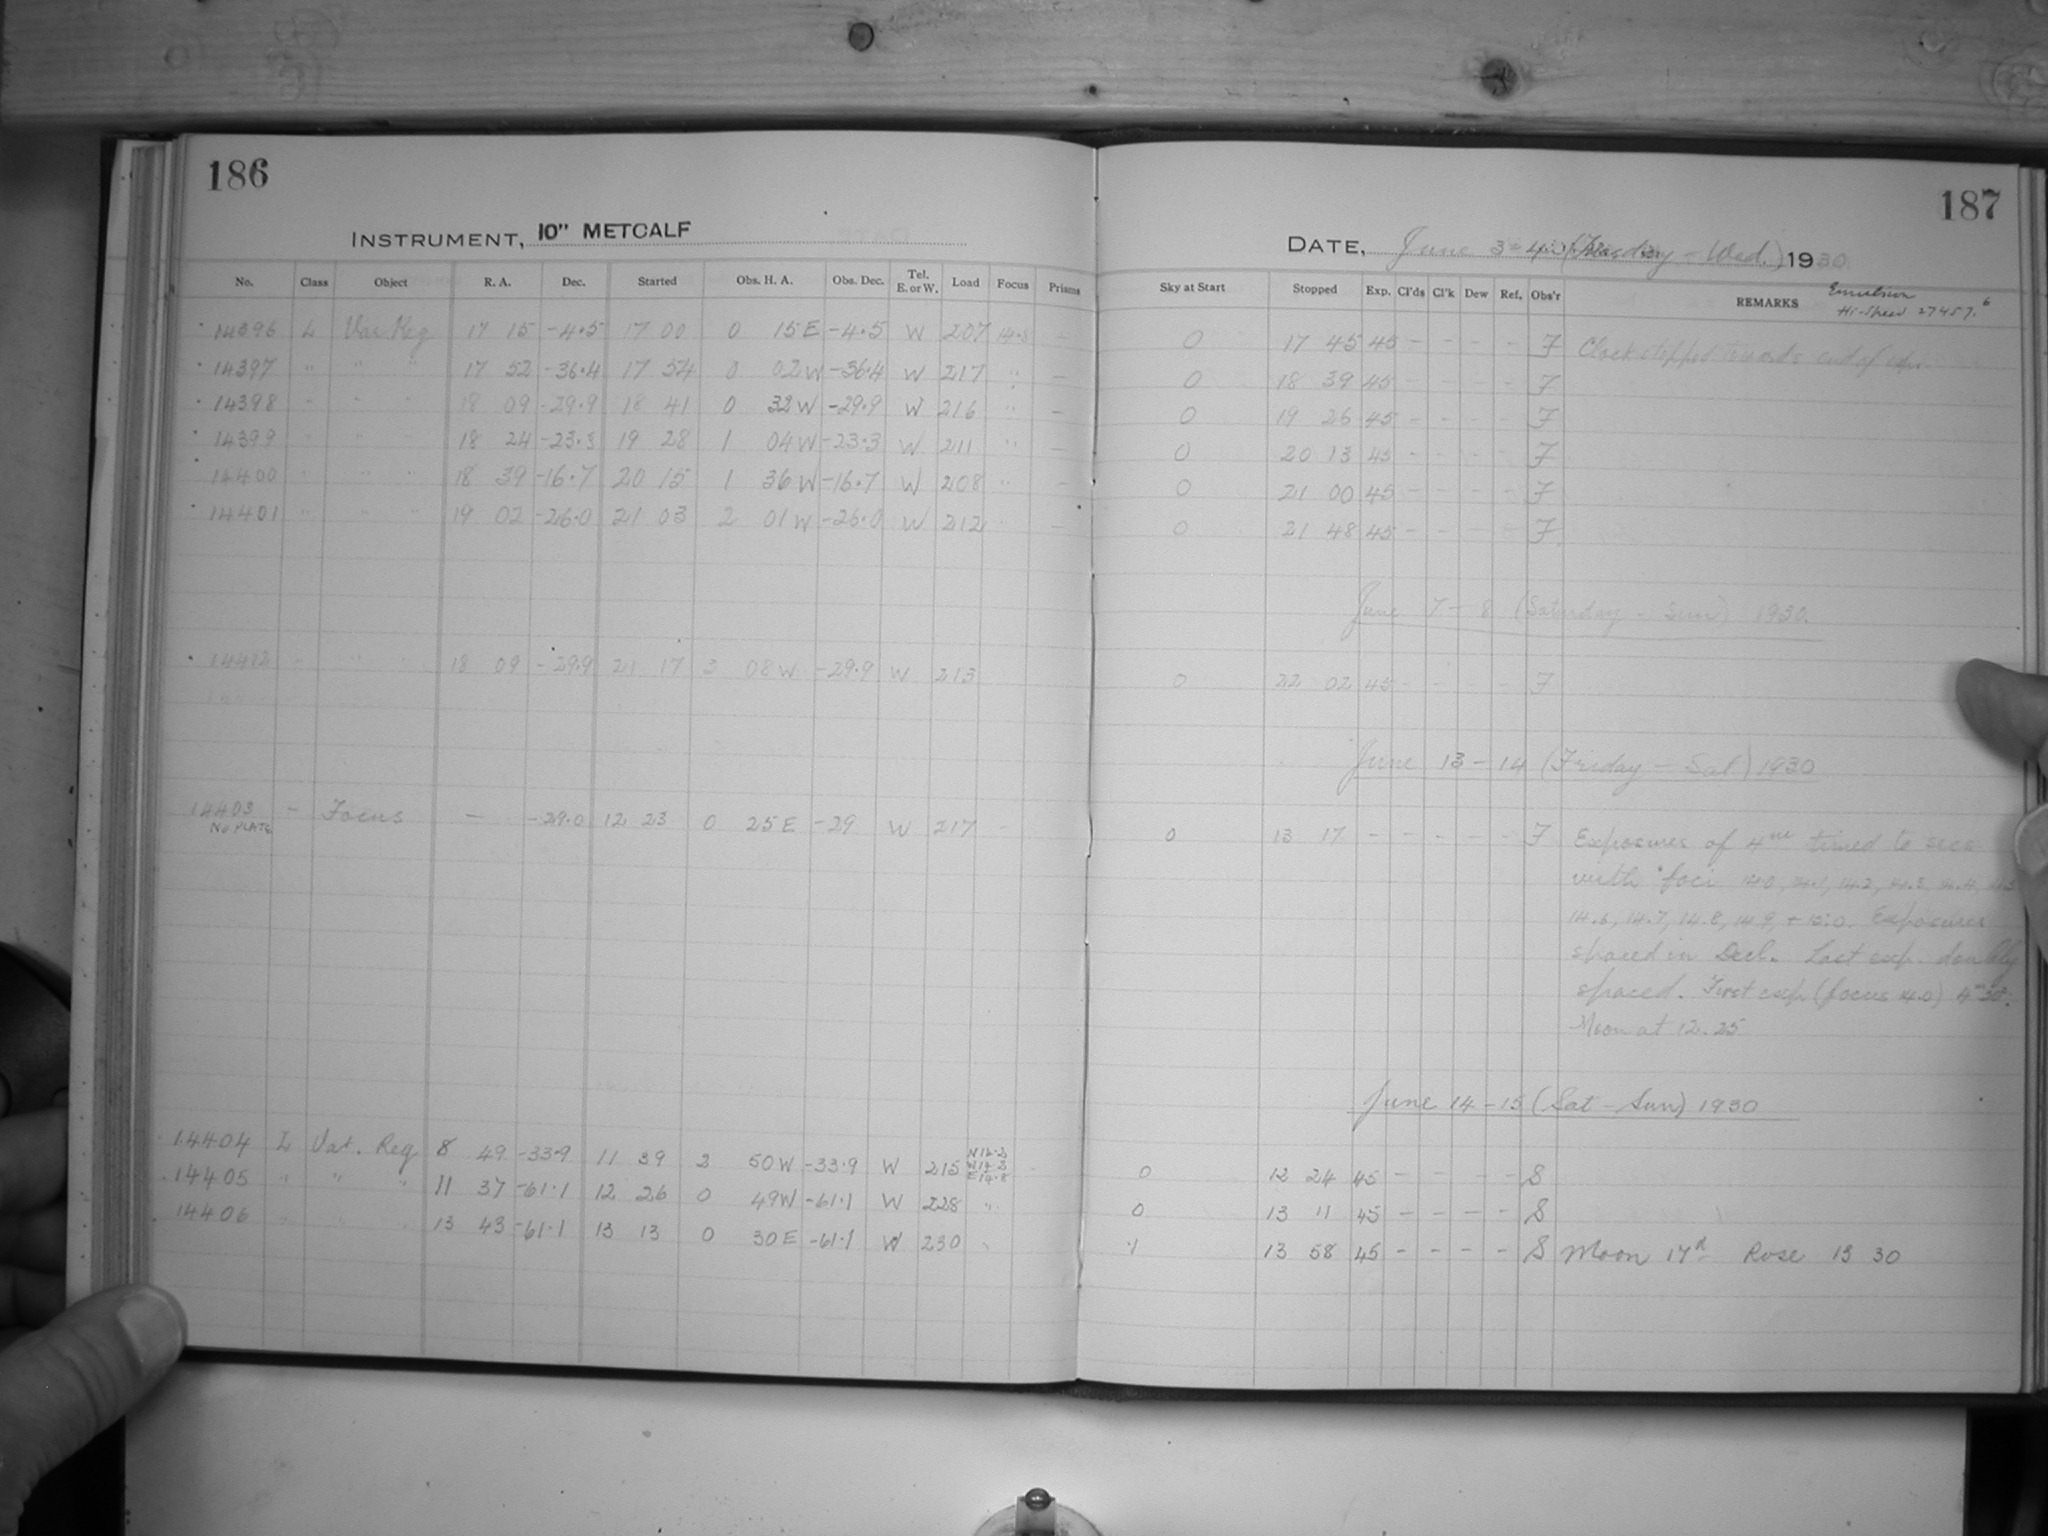 186
INSTRUMENT, 10" METCALF
No. Class Object R. A. Dec. Started Obs. H. A. Obs. Dec. Tel. E. or W. Load Focus Prisms
14396 L Var. Reg 17 15 -4.5 17 00 0 15 E -4.5 W 207 14.8 -
14397 " " " 17 52 -36.4 17 54 0 02 W -36.4 W 217 " -
14398 " " " 18 09 -29.9 18 41 0 32 W -29.9 W 216 " -
14399 " " " 18 24 -23.3 19 28 1 04 W -23.3 W 211 " -
14400 " " " 18 39 -16.7 20 15 1 36 W -16.7 W 208 " -
14401 " " " 19 02 -26.0 21 03 2 01 W -26.0 W 212 -
14402 " " " 18 09 -29.9 21 17 3 08 W -29.9 W 213
14403 - Focus - -29.0 12 23 0 25 E -29 W 217 -
No PLATE
14404 L Var. Reg 8 49 -33.9 11 39 2 50 W -33.9 W 215
14405 " " " 11 37 -61.1 12 26 0 49 W -61.1 W 228 "
14406 " " " 13 43 -61.1 13 13 0 30 E -61.1 W 230 "
187
DATE, June 3-4 (Tuesday - Wed.) 1930
Sky at Start Stopped Exp. Cl'ds Cl'k Dew Ref. Obs'r REMARKS Emulsion
Hi-Speed 27457
0 17 45 45 - - - - F Clock stopped towards end of exp.
0 18 39 45 - - - - F
0 19 26 45 - - - - F
0 20 13 45 - - - - F
0 21 00 45 - - - - F
0 21 48 45 - - - - F
June 7 - 8 (Saturday - Sun) 1930.
0 22 02 45 - - - - F
June 13 - 14 (Friday - Sat) 1930
0 13 17 - - - - - F Exposures of 4m timed to secs
with foci 14.0, 14.1, 14.2, 14.3, 14.4, 14.5
14.6, 14.7, 14.8, 14.9, + Exposures
spaced in Decl. Last exp. doubly
spaced. First exp (focus 14.0) 4m 30s.
Moon at 12.25
June 14 - 15 (Sat - Sun) 1930
0 12 24 45 - - - - S
0 13 11 45 - - - - S
1 13 58 45 - - - - S Moon 17d Rose 13 30